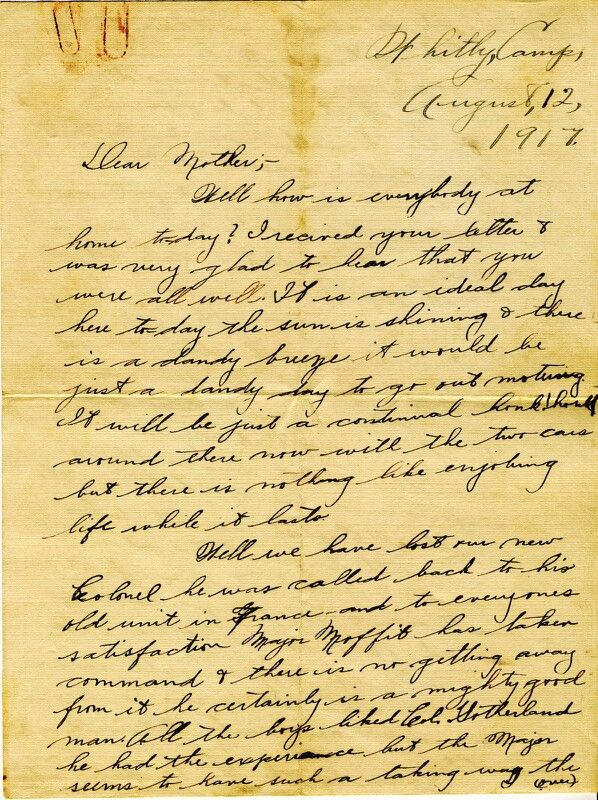 Whitly, Camp,
August, 12,
1917.
Dear Mother;-
Well how is everybody at
home to-day? I recived your letter &
was very glad to hear that you
were all well. It is an ideal day
here to-day the sun is shining & there
is a dandy breeze it would be
just a dandy day to go out motring
It will be just a continual honk! honk
around there now with the two cars
but there is nothing like enjoying
life while it lasts.
Well we have lost our new
Colonel he was called back to his
old unit in France and to everyones
satisfaction Major Moffit has taken
command & there is no getting away
from it he certainly is a mighty good
man. All the boys liked Col. Sotherland
he had the experience but the Major
seems to have such a taking way the
(over)